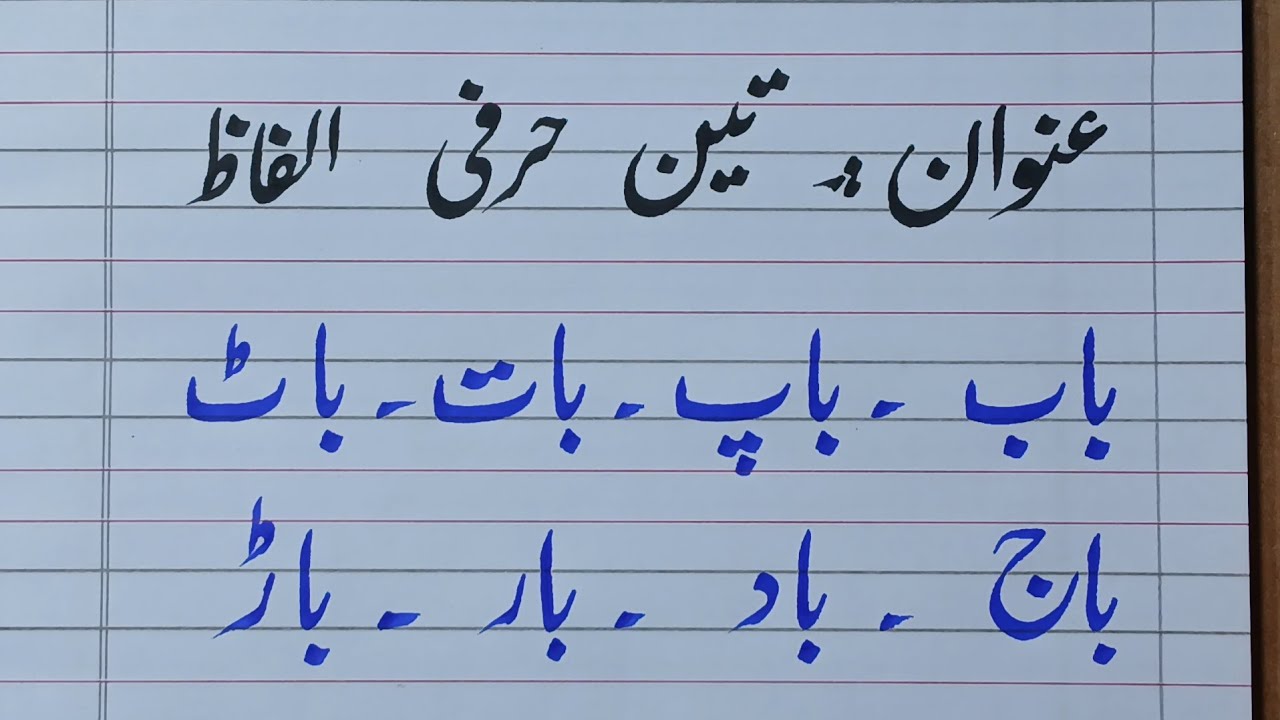 عنوان :۔ تین حرفی الفاظ
باب ۔ باپ ۔ بات ۔ باٹ
باج ۔ باد ۔ بار ۔ باڑ